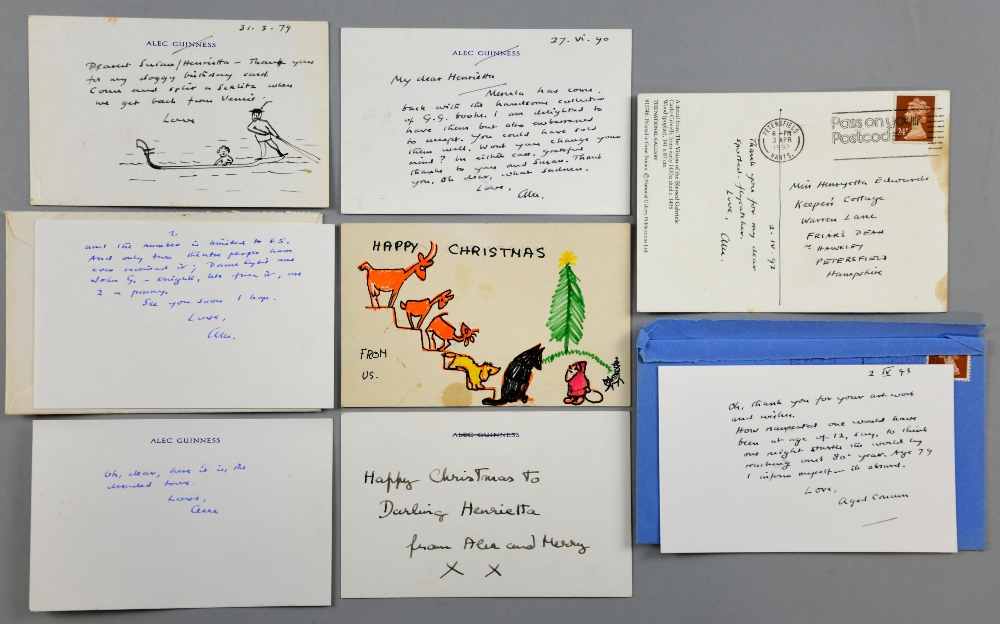 31-3-79
ALEC GUINNESS
Dearest Susan/Henrietta - Thank you
for my doggy birthday card
Come and split a Schlitz when
we get back from Venice.
Love
ALEC GUINNESS
27-VI-90
My dear Henrietta
Merula has come
back with the handsome collection
of G.G. books. I am delighted to
have them but also embarrassed
to accept. You could have sold
them well. Wont you change your
mind? In either case, grateful
thanks to you and Susan. Thank
you. Oh dear, what sadness.
Love,
Alec.
A detail from The Vision of the Blessed Gabriele
Carlo Crivelli
Wood (poplar), 141 x 87 cm.
THE NATIONAL GALLERY
© National Gallery Publications Ltd
2.IV.97
Thank you for my dear
spotted-flycatcher.
Love, Alec.
PETERSFIELD
PM
3 APR
1997
HANTS.
Pass on your
Postcode
Miss Henryetta Edwards
Keepers Cottage
Warren Lane
FRIAR'S DEAN
Nr HAWKLEY
PETERSFIELD
Hampshire
2
and the number is limited to 65.
And only two theatre people have
ever received it; Dame Sybil and
John G. - Knights, lets face it, are
2 a penny.
See you soon I hope.
Love,
Alec.
HAPPY CHRISTMAS
FROM
US.
2 IV 93
Oh, thank you for your art work
and wishes.
How
one would have
been at age of 12, say, to think
one might startle the world by
reaching one's 80th year. Age 79
I inform myself - its absurd.
Love,
Aged Concern
ALEC GUINNESS
Oh, dear, here it is, the
dreaded tome.
Love,
Alec
ALEC GUINNESS
Happy Christmas to
Darling Henrietta
from Alec and Merry
X X